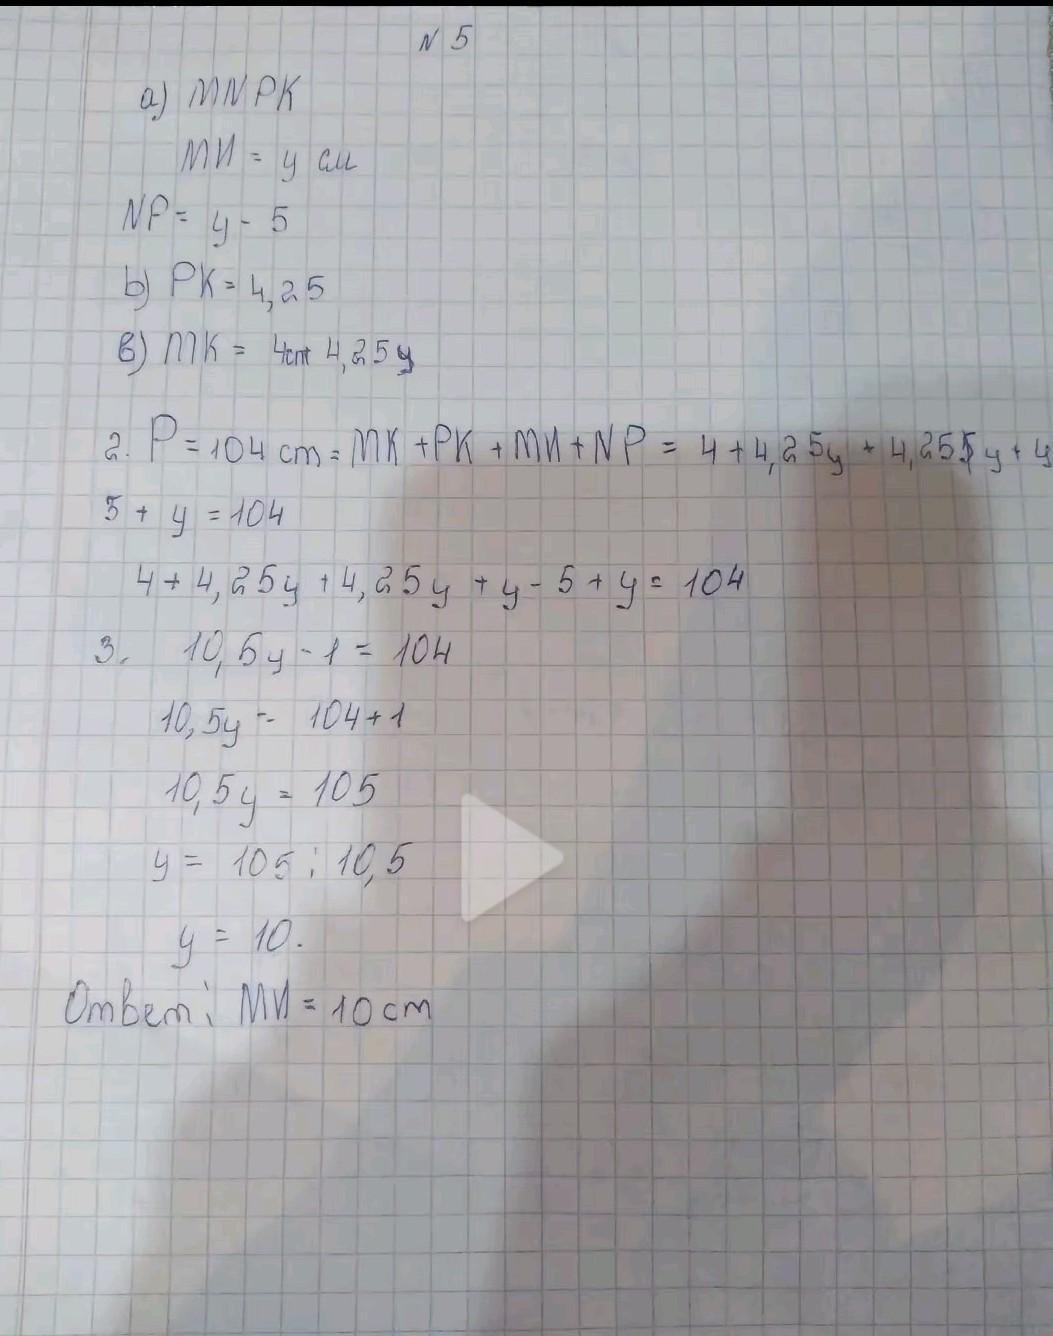 N 5
а) MNPK
МИ = у см
NP = y - 5
b) PK = 4,25
в) MK = 4cm 4,25y
2. P = 104 cm = MK + PK + МИ + NP = 4 + 4,25y + 4,255y + y
5 + y = 104
4 + 4,25y + 4,25y + y - 5 + y = 104
3. 10,5y - 1 = 104
10,5y = 104 + 1
10,5y = 105
y = 105 : 10,5
y = 10.
Ответ: МИ = 10 cm